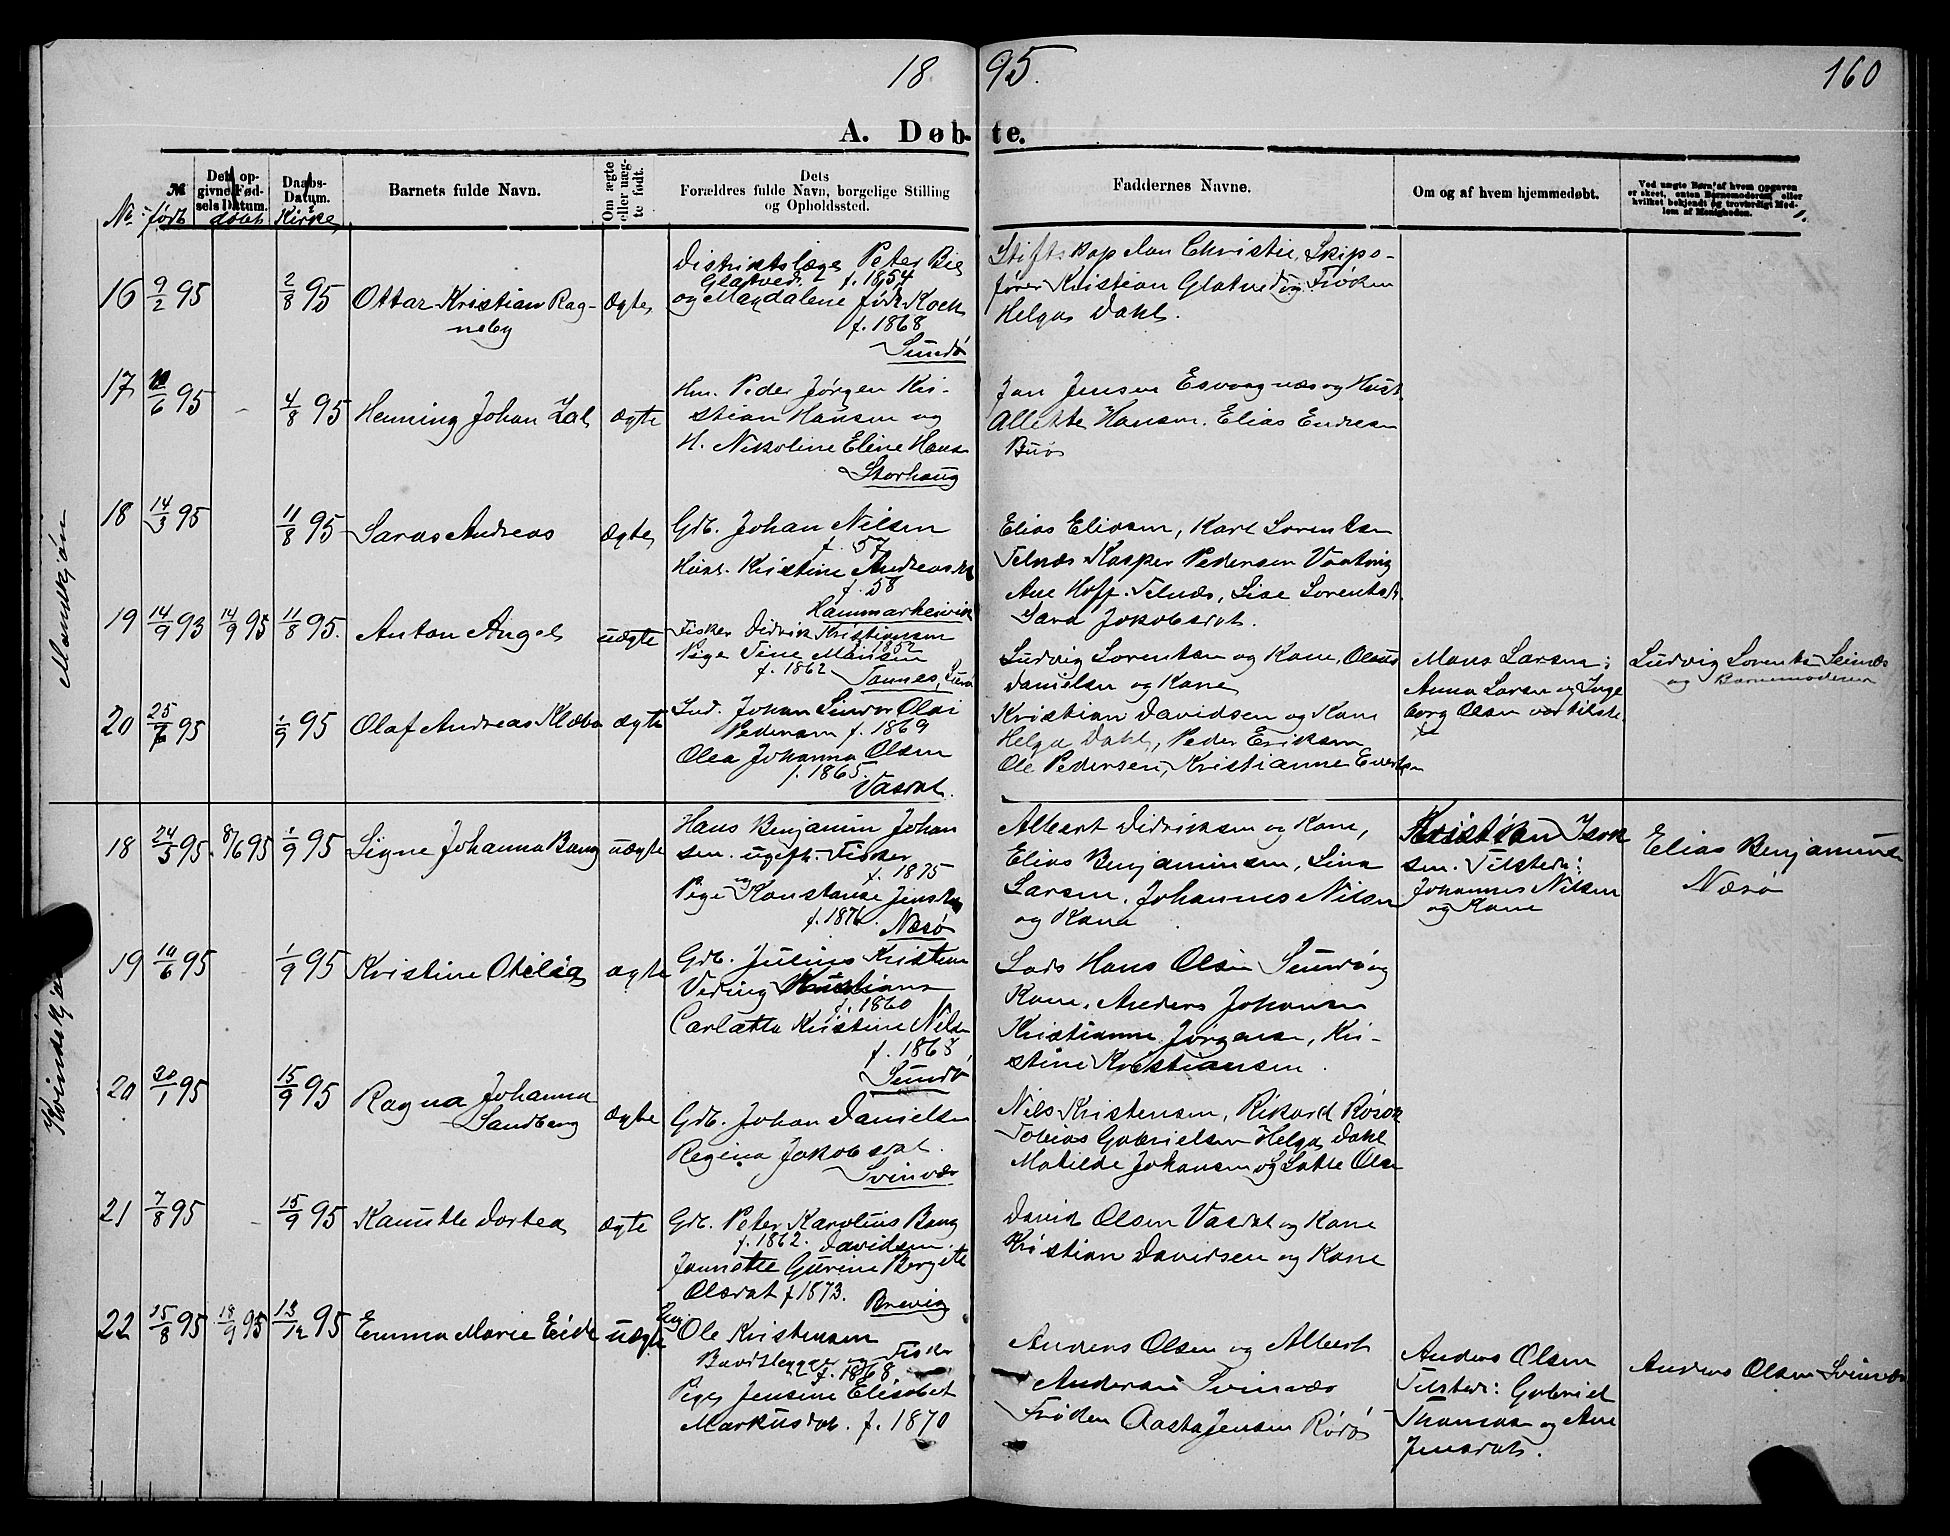 18 95. 160
A. Døbte.
No. født
Det opgivne Fødsels Datum.
døbt
Daabs-Datum.
Kirke
Barnets fulde Navn.
Om ægte eller uægte født.
Dets Forældres fulde Navn, borgelige Stilling og Opholdssted.
Faddernes Navne.
Om og af hvem hjemmedøbt.
Ved uægte Børn af hvem Opgaven er skeet, enten Barnemoderen eller hvilket bekjendt og troværdigt Medlem af Menigheden.
Mandkjøn
16 9/2 95 2/8 95 Ottar Kristian Ragneby ægte
Distriktslæge Peter Bie
Glatved f. 1854
og Magdalene født Koch
f. 1868
Sundø
Stiftskapelan Christie, Skips-
fører Kristian Glatved og Frøken
Helga Dahl.
17 6 95 4/8 95 Henning Johan ægte
Hm. Peder Jørgen Kri-
stian Hansen og
H. Nikoline Eline Hans
Storhaug
Jan Jensen Esvaagnæs og Hust.
Allette Hansen. Elias Endresen
Buø
18 14/3 95 11/8 95 Andreas ægte
Gdb. Johan Nilsen
f. 57
Hust. Kristine Andreasdt
f. 58
Hammarheivik
Elias Eliasen, Karl Lorentsen
Selnæs Kasper Pedersen Vaating
Ane Hoff. Selnæs, Lise Lorentsdt.
Sara Jakobsdat.
19 14/9 93 14/9 95 11/8 95. Anton Angel uægte
Fisker Didrik Kristiansen
1852
Pige Tine Monsen
f. 1862 Sannes,
Ludvig Lorentsen og Kone, Olaus
Danielsen og Kone
Mons Larsen;
Anna Larsen og Inge
borg Olsen var tilste-
de
Ludvig Lorents Selnæs
og Barnemoderen
20 25/6 95 1/9 95 Olaf Andreas Klæbo ægte
Ind. Johan Sindor Olai
Pedersen f. 1869
Olea Johanna Olsen
f. 1865.
Vasdal.
Kristian Davidsen og Kone
Helga Dahl, Peder Eriksen
Ole Pedersen, Kristianne Evertsen
Kvindekjøn
18 24/3 95 8/6 95 1/9 95 Signe Johanna Bang uægte
Hans Benjamin Johan
sen. ugift. Fisker
f. 1875
Pige og Konstanse Jensen
f. 1876.
Næsø
Albert Didriksen og Kone,
Elias Benjaminsen, Lina
Larsen, Johannes Nilsen
og Kone
Kristian Isak
sen. Tilstede:
Johannes Nilsen
og Kone
Elias Benjamins
Næsø
19 10/6 95 1/9 95 Kristine Otilia ægte
Gdb. Julius Kristian
Veding Kristians
f. 1860
Carlotta Kristine Nilsen
f. 1868
Sundø
Lods Hans Olsen Sundø og
Kone, Anders Johansen
Kristianne Jørgensen, Kri-
stine Kristiansen.
20 30/1 95 15/9 95 Ragna Johanna
Sandberg ægte
Gdb. Johan Danielsen
Regina Jakobsdat.
Svinvær
Nils Kristensen, Rikard Rosok
Tobias Gabrielsen Helga Dahl
Matilde Johansen og Lotte Olsen
21 7/8 95 15/9 95 Kamille Dortea ægte
Gdb. Peter Karolius Bang
f. 1862. Davidsen.
Jannette Gurine Bergete
Olsdat f 1873.
Brevig
David Olsen Vasdal og Kone
Kristian Davidsen og Kone
22 15/8 95 18/9 95 13/12 95 Emma Marie Eide uægte
Ole Kristensen
og Fisker
f. 1868
Pige Jensine Elisabet
Markusdat. f. 1870
Anders Olsen og Albert
Andersen Svinvær
Frøken Aasta Jensen Rörö
Anders Olsen
Tilstede: Gabriel
Thomasen og Ane
Jensdat.
Anders Olsen Svinvær